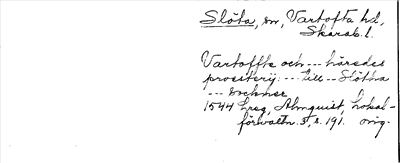 Slöta, sn, Vartofta hd,
Skarab. l.
Vartoffte och --- häredes
prosterij: --- till -- Slöttha
--- Sochner
1544 Lreg, Almquist, Lokal-
förvaltn. 3, s. 191. orig.